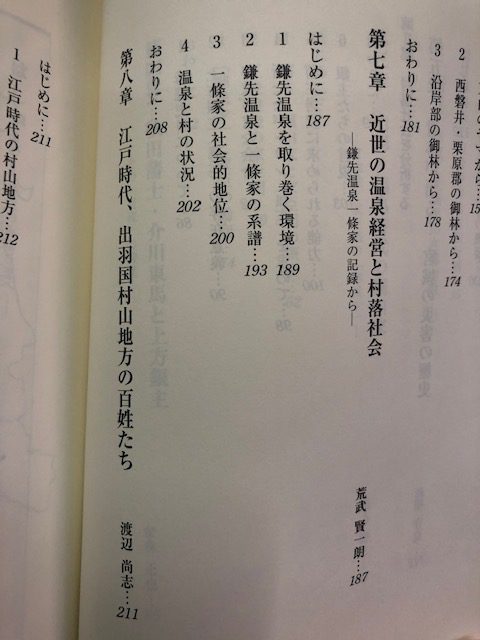 2 西磐井・栗原郡の御林から…174
3 沿岸部の御林から…178
おわりに…181
第七章 近世の温泉経営と村落社会
―鎌先温泉一條家の記録から―
荒武 賢一朗…187
はじめに…187
1 鎌先温泉を取り巻く環境…189
2 鎌先温泉と一條家の系譜…193
3 一條家の社会的地位…200
4 温泉と村の状況…202
おわりに…208
第八章 江戸時代、出羽国村山地方の百姓たち
渡辺 尚志…211
はじめに…211
1 江戸時代の村山地方…212